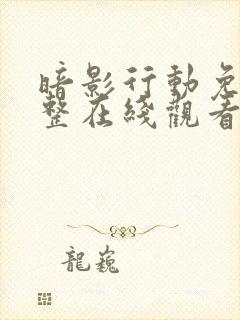 暗影行動免
整在綫觀看
龍巍